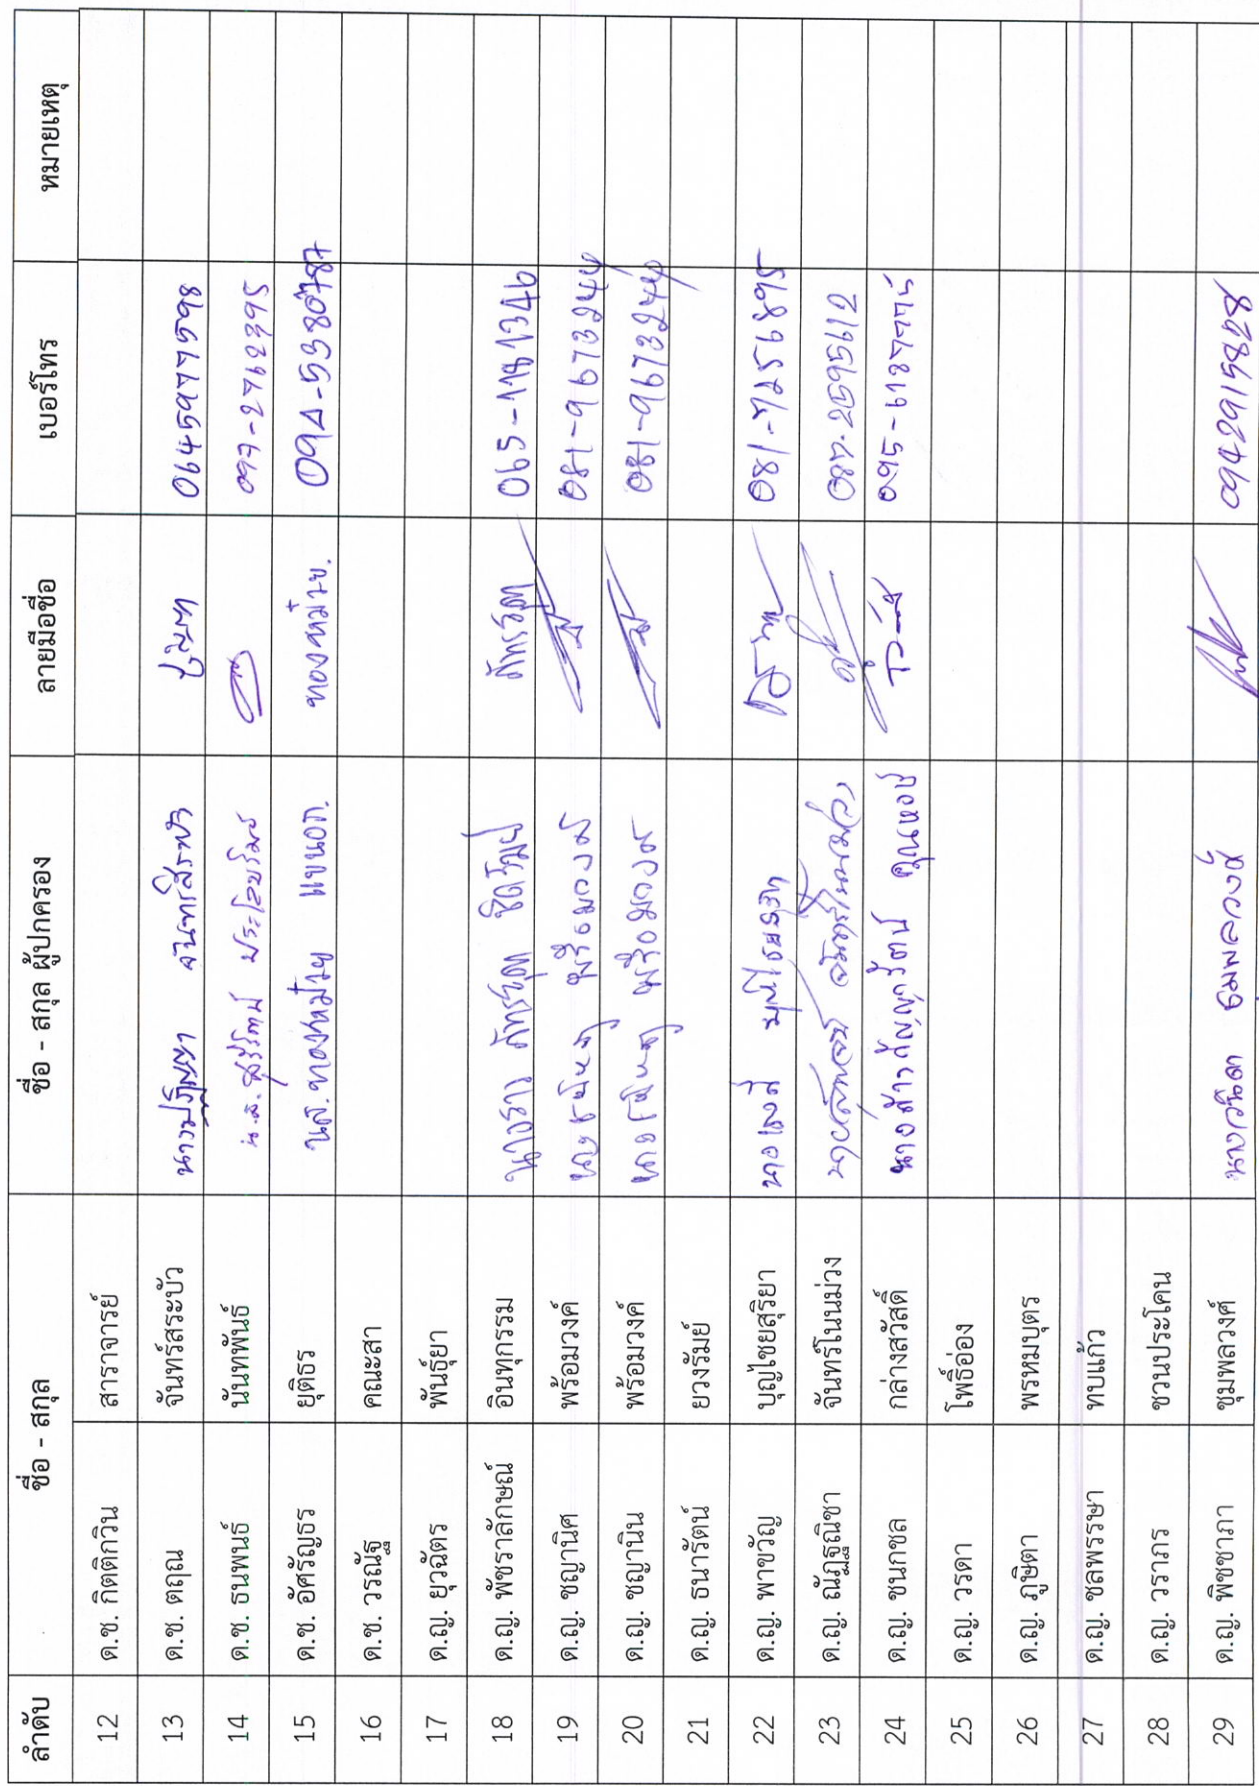 ลำดับ ชื่อ - สกุล ชื่อ - สกุล ผู้ปกครอง ลายมือชื่อ เบอร์โทร หมายเหตุ
12 ด.ช. กิตติกวิน สาราจารย์
13 ด.ช. ตฤณ จันทร์สระบัว จันทร์สระบัว 0645977598
14 ด.ช. ธนพนธ์ นันทพันธ์ น.ส. สุรีรัตน์ 097-2762395
15 ด.ช. อัศรัญธร ยุติธร นส. แขนอก. 094-5380787
16 ด.ช. วรณัฐ คณะสา
17 ด.ญ. ยุวฉัตร พันธ์ยา
18 ด.ญ. พัชราลักษณ์ อินทุกรรม ภัทรวุฒ 065-1161346
19 ด.ญ. ชญานิศ พร้อมวงศ์ พร้อมวงศ์ 081-9673244
20 ด.ญ. ชญานิน พร้อมวงศ์ พร้อมวงศ์ 081-9673244
21 ด.ญ. ธนารัตน์ ยวงรัมย์
22 ด.ญ. พาขวัญ บุญไชยสุริยา 081-7256895
23 ด.ญ. ณัฏฐณิชา จันทร์โนนม่วง จันทร์โนนม่วง 087-2595612
24 ด.ญ. ชนกชล กล่างสวัสดิ์ นางสาวกัญญารัตน์ คุณหอม
25 ด.ญ. วรดา โพธิ์อ่อง
26 ด.ญ. ภูษิตา พรหมบุตร
27 ด.ญ. ชลพรรษา ทบแก้ว
28 ด.ญ. วราภร ชวนประโคน
29 ด.ญ. พิชชาภา ชุมพลวงศ์ นางวนิดา ชุมพลวงศ์ 0942915828